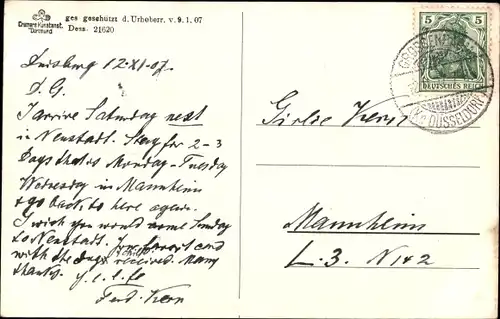 Cramers Kunstanst. Dortmund
ges geschützt d. Urheberr. v. 9.1.07
Dess. 21620
Duisburg 12·XI·07
D. G.
I arrive Saturday next
in Neustadt. Stay for 2-3
Days that is Monday-Tuesday
Wednesday in Mannheim
& go back to here again.
I wish you would come Sunday
to Neustadt. Your card
with the dogs received. Many
thanks.
Ferd. Kern
5 5
DEUTSCHES REICH
DÜSSELDORF
Kern
Mannheim
L. 3. No 2